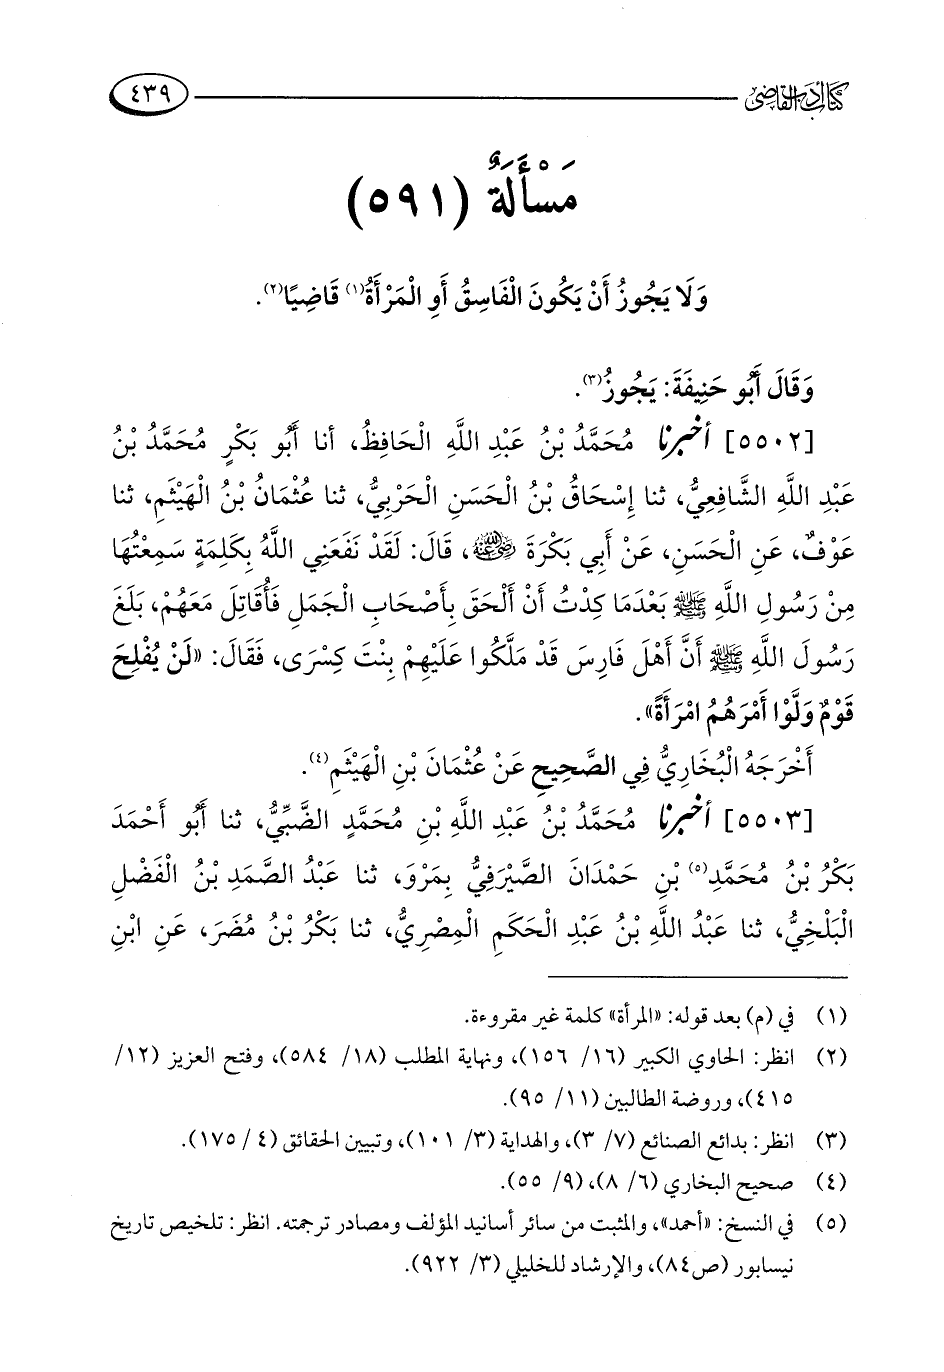 كتاب أدب القاضي ٤٣٩
مَسْأَلَةٌ (٥٩١)
وَلَا يَجُوزُ أَنْ يَكُونَ الْفَاسِقُ أَوِ الْمَرْأَةُ(١) قَاضِيًا(٢).
وَقَالَ أَبُو حَنِيفَةَ: يَجُوزُ(٣).
[٥٥٠٢] أخبرنا مُحَمَّدُ بْنُ عَبْدِ اللَّهِ الْحَافِظُ، أنا أَبُو بَكْرٍ مُحَمَّدُ بْنُ
عَبْدِ اللَّهِ الشَّافِعِيُّ، ثنا إِسْحَاقُ بْنُ الْحَسَنِ الْحَرْبِيُّ، ثنا عُثْمَانُ بْنُ الْهَيْثَمِ، ثنا
عَوْفٌ، عَنِ الْحَسَنِ، عَنْ أَبِي بَكْرَةَ رضي الله عنه، قَالَ: لَقَدْ نَفَعَنِي اللَّهُ بِكَلِمَةٍ سَمِعْتُهَا
مِنْ رَسُولِ اللَّهِ ﷺ بَعْدَمَا كِدْتُ أَنْ أَلْحَقَ بِأَصْحَابِ الْجَمَلِ فَأُقَاتِلَ مَعَهُمْ، بَلَغَ
رَسُولَ اللَّهِ ﷺ أَنَّ أَهْلَ فَارِسَ قَدْ مَلَّكُوا عَلَيْهِمْ بِنْتَ كِسْرَى، فَقَالَ: «لَنْ يُفْلِحَ
قَوْمٌ وَلَّوْا أَمْرَهُمُ امْرَأَةً».
أَخْرَجَهُ الْبُخَارِيُّ فِي الصَّحِيحِ عَنْ عُثْمَانَ بْنِ الْهَيْثَمِ(٤).
[٥٥٠٣] أخبرنا مُحَمَّدُ بْنُ عَبْدِ اللَّهِ بْنِ مُحَمَّدٍ الضَّبِّيُّ، ثنا أَبُو أَحْمَدَ
بَكْرُ بْنُ مُحَمَّدِ(٥) بْنِ حَمْدَانَ الصَّيْرَفِيُّ بِمَرْوَ، ثنا عَبْدُ الصَّمَدِ بْنُ الْفَضْلِ
الْبَلْخِيُّ، ثنا عَبْدُ اللَّهِ بْنُ عَبْدِ الْحَكَمِ الْمِصْرِيُّ، ثنا بَكْرُ بْنُ مُضَرَ، عَنِ ابْنِ
(١) في (م) بعد قوله: «المرأة» كلمة غير مقروءة.
(٢) انظر: الحاوي الكبير (١٦/ ١٥٦)، ونهاية المطلب (١٨/ ٥٨٤)، وفتح العزيز (١٢/
٤١٥)، وروضة الطالبين (١١/ ٩٥).
(٣) انظر: بدائع الصنائع (٧/ ٣)، والهداية (٣/ ١٠١)، وتبيين الحقائق (٤/ ١٧٥).
(٤) صحيح البخاري (٦/ ٨)، (٩/ ٥٥).
(٥) في النسخ: «أحمد»، والمثبت من سائر أسانيد المؤلف ومصادر ترجمته. انظر: تلخيص تاريخ
نيسابور (ص٨٤)، والإرشاد للخليلي (٣/ ٩٢٢).